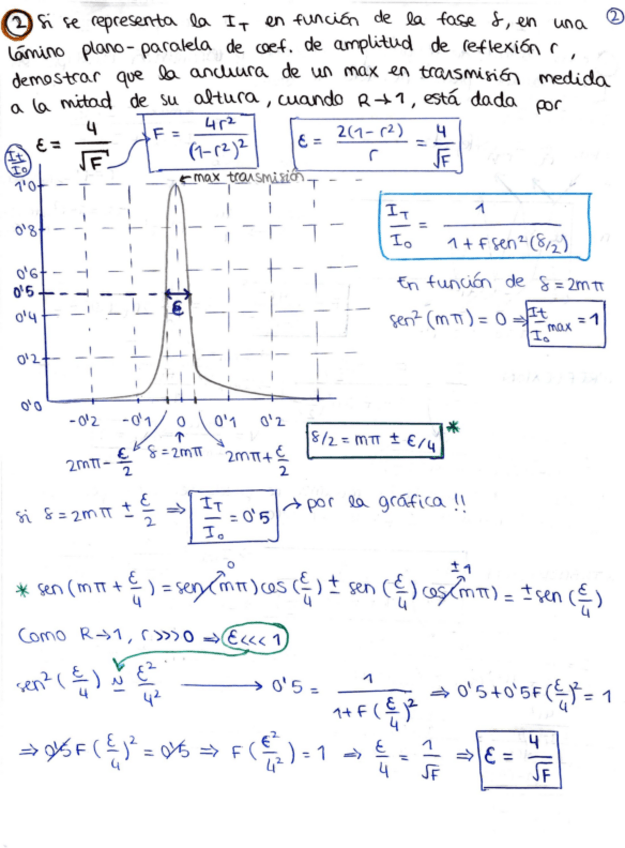 ② Si se representa la I_T en función de la fase δ, en una ②
lámino plano-paralela de coef. de amplitud de reflexión r,
demostrar que la anchura de un max en transmisión medida
a la mitad de su altura, cuando R→1, está dada por
ε = 4/√F F = 4r²/(1-r²)² ε = 2(1-r²)/r = 4/√F
It/Io
max transmisión
1'0
0'8
0'6
0'5
0'4
0'2
0'0
ε
-0'2 -0'1 0 0'1 0'2
2mπ-ε/2 δ=2mπ 2mπ+ε/2
I_T/I_o = 1/(1+F sen²(δ/2))
En función de δ=2mπ
sen²(mπ) = 0 ⇒ It/Io max = 1
δ/2 = mπ ± ε/4 *
si δ=2mπ ± ε/2 ⇒ I_T/I_o = 0'5 → por la gráfica!!
* sen(mπ+ε/4) = sen(mπ)cos(ε/4) ± sen(ε/4)cos(mπ) = ±sen(ε/4)
0 ±1
Como R→1, r>>>0 ⇒ ε<<<1
sen²(ε/4) ≃ ε²/4² → 0'5 = 1/(1+F(ε/4)²) ⇒ 0'5+0'5F(ε/4)² = 1
⇒ 0'5F(ε/4)² = 0'5 ⇒ F(ε²/4²) = 1 ⇒ ε/4 = 1/√F ⇒ ε = 4/√F